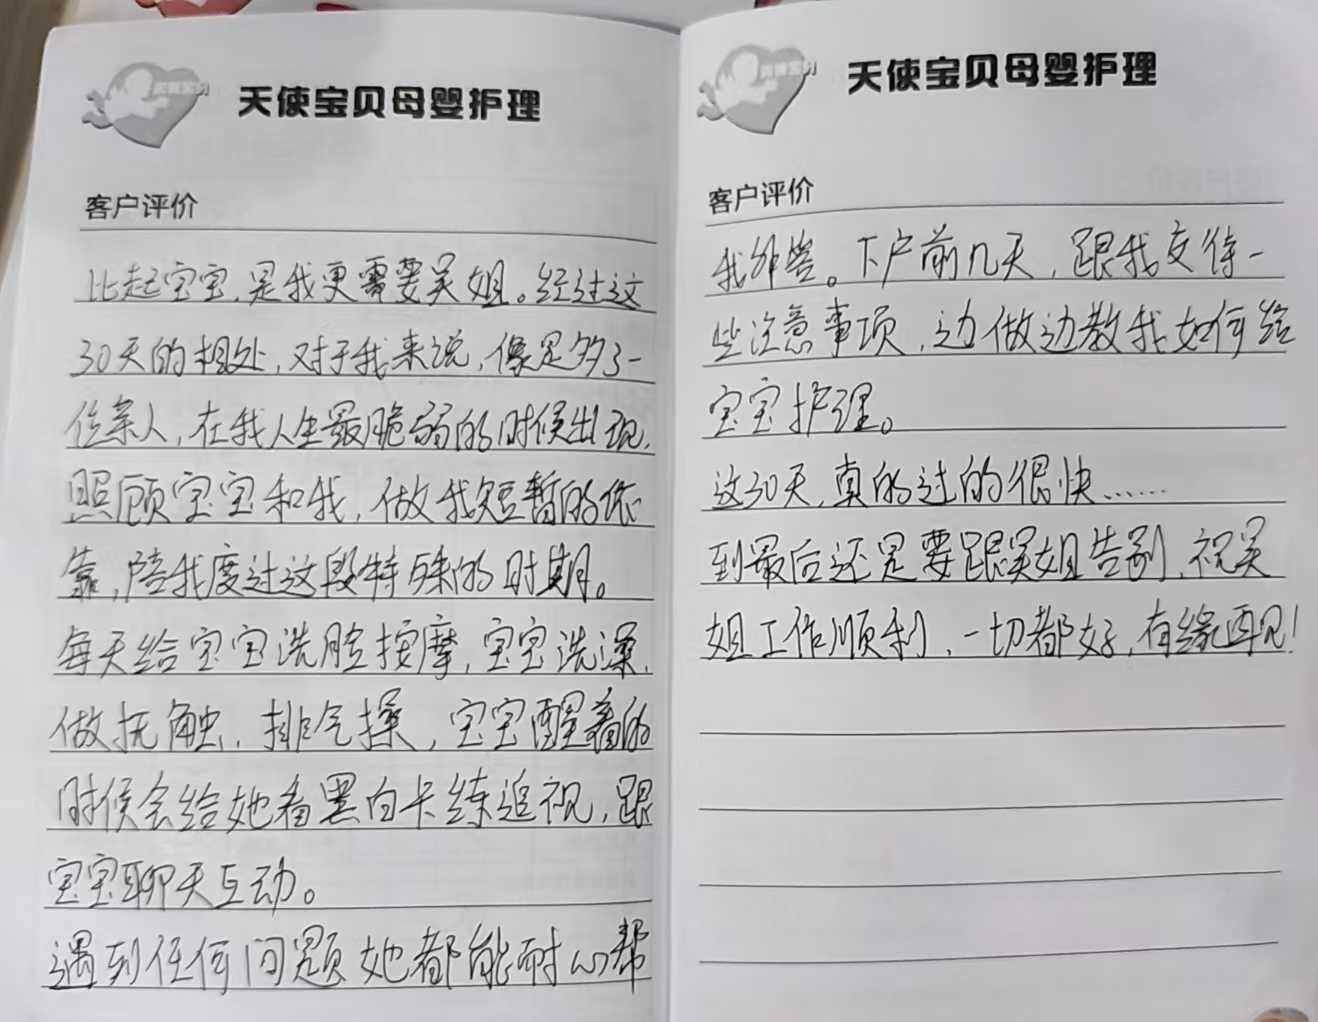 天使宝贝母婴护理
客户评价
比起宝宝,是我更需要吴姐。经过这
30天的相处,对于我来说,像是多了一
位亲人,在我人生最脆弱的时候出现,
照顾宝宝和我,做我短暂的依
靠,陪我度过这段特殊的时期。
每天给宝宝洗脸按摩,宝宝洗澡,
做抚触,排气操,宝宝醒着的
时候会给她看黑白卡练追视,跟
宝宝聊天互动。
遇到任何问题她都能耐心帮
天使宝贝母婴护理
客户评价
我解答。下户前几天,跟我交待一
些注意事项,边做边教我如何给
宝宝护理。
这30天,真的过的很快……
到最后还是要跟吴姐告别,祝吴
姐工作顺利,一切都好,有缘再见!